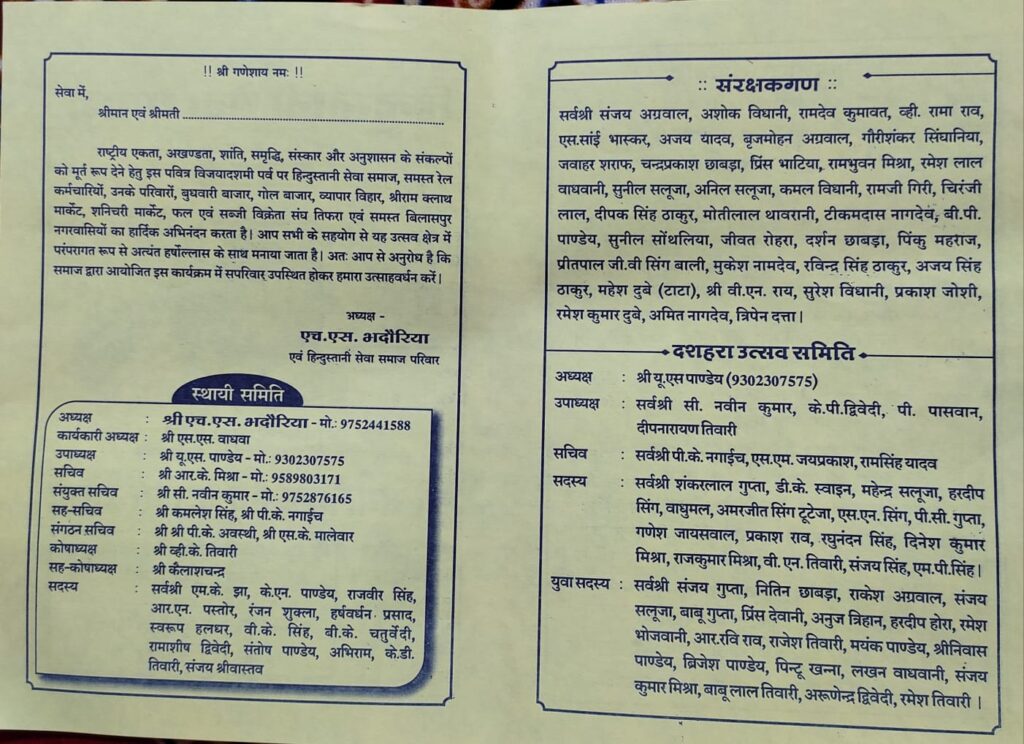 !! श्री गणेशाय नमः !!
सेवा में,
श्रीमान एवं श्रीमती
राष्ट्रीय एकता, अखण्डता, शांति, समृद्धि, संस्कार और अनुशासन के संकल्पों
को मूर्त रूप देने हेतु इस पवित्र विजयादशमी पर्व पर हिन्दुस्तानी सेवा समाज, समस्त रेल
कर्मचारियों, उनके परिवारों, बुधवारी बाजार, गोल बाजार, व्यापार विहार, श्रीराम क्लाथ
मार्केट, शनिचरी मार्केट, फल एवं सब्जी विक्रेता संघ तिफरा एवं समस्त बिलासपुर
नगरवासियों का हार्दिक अभिनंदन करता है। आप सभी के सहयोग से यह उत्सव क्षेत्र में
परंपरागत रूप से अत्यंत हर्षोल्लास के साथ मनाया जाता है। अतः आप से अनुरोध है कि
समाज द्वारा आयोजित इस कार्यक्रम में सपरिवार उपस्थित होकर हमारा उत्साहवर्धन करें।
अध्यक्ष -
एच.एस. भदौरिया
एवं हिन्दुस्तानी सेवा समाज परिवार
स्थायी समिति
अध्यक्ष : श्री एच.एस. भदौरिया - मो.: 9752441588
कार्यकारी अध्यक्ष : श्री एस.एस. वाधवा
उपाध्यक्ष : श्री यू.एस. पाण्डेय - मो.: 9302307575
सचिव : श्री आर.के. मिश्रा - मो.: 9589803171
संयुक्त सचिव : श्री सी. नवीन कुमार - मो.: 9752876165
सह-सचिव : श्री कमलेश सिंह, श्री पी.के. नगाईच
संगठन सचिव : श्री श्री पी.के. अवस्थी, श्री एस.के. मालेवार
कोषाध्यक्ष : श्री व्ही.के. तिवारी
सह-कोषाध्यक्ष : श्री कैलाशचन्द्र
सदस्य : सर्वश्री एम.के. झा, के.एन. पाण्डेय, राजवीर सिंह,
आर.एन. पस्तोर, रंजन शुक्ला, हर्षवर्धन प्रसाद,
स्वरूप हलधर, वी.के. सिंह, वी.के. चतुर्वेदी,
रामाशीष द्विवेदी, संतोष पाण्डेय, अभिराम, के.डी.
तिवारी, संजय श्रीवास्तव
:: संरक्षकगण ::
सर्वश्री संजय अग्रवाल, अशोक विधानी, रामदेव कुमावत, व्ही. रामा राव,
एस.सांई भास्कर, अजय यादव, बृजमोहन अग्रवाल, गौरीशंकर सिंघानिया,
जवाहर शराफ, चन्द्रप्रकाश छाबड़ा, प्रिंस भाटिया, रामभुवन मिश्रा, रमेश लाल
वाधवानी, सुनील सलूजा, अनिल सलूजा, कमल विधानी, रामजी गिरी, चिरंजी
लाल, दीपक सिंह ठाकुर, मोतीलाल थावरानी, टीकमदास नागदेव, बी.पी.
पाण्डेय, सुनील सोंथलिया, जीवत रोहरा, दर्शन छाबड़ा, पिंकु महराज,
प्रीतपाल जी.वी सिंग बाली, मुकेश नामदेव, रविन्द्र सिंह ठाकुर, अजय सिंह
ठाकुर, महेश दुबे (टाटा), श्री वी.एन. राय, सुरेश विधानी, प्रकाश जोशी,
रमेश कुमार दुबे, अमित नागदेव, त्रिपेन दत्ता।
दशहरा उत्सव समिति
अध्यक्ष : श्री यू.एस पाण्डेय (9302307575)
उपाध्यक्ष : सर्वश्री सी. नवीन कुमार, के.पी.द्विवेदी, पी. पासवान,
दीपनारायण तिवारी
सचिव : सर्वश्री पी.के. नगाईच, एस.एम. जयप्रकाश, रामसिंह यादव
सदस्य : सर्वश्री शंकरलाल गुप्ता, डी.के. स्वाइन, महेन्द्र सलूजा, हरदीप
सिंग, वाधुमल, अमरजीत सिंग टूटेजा, एस.एन. सिंग, पी.सी. गुप्ता,
गणेश जायसवाल, प्रकाश राव, रघुनंदन सिंह, दिनेश कुमार
मिश्रा, राजकुमार मिश्रा, वी. एन. तिवारी, संजय सिंह, एम.पी.सिंह।
युवा सदस्य : सर्वश्री संजय गुप्ता, नितिन छाबड़ा, राकेश अग्रवाल, संजय
सलूजा, बाबू गुप्ता, प्रिंस देवानी, अनुज त्रिहान, हरदीप होरा, रमेश
भोजवानी, आर.रवि राव, राजेश तिवारी, मयंक पाण्डेय, श्रीनिवास
पाण्डेय, ब्रिजेश पाण्डेय, पिन्टू खन्ना, लखन वाधवानी, संजय
कुमार मिश्रा, बाबू लाल तिवारी, अरूणेन्द्र द्विवेदी, रमेश तिवारी ।